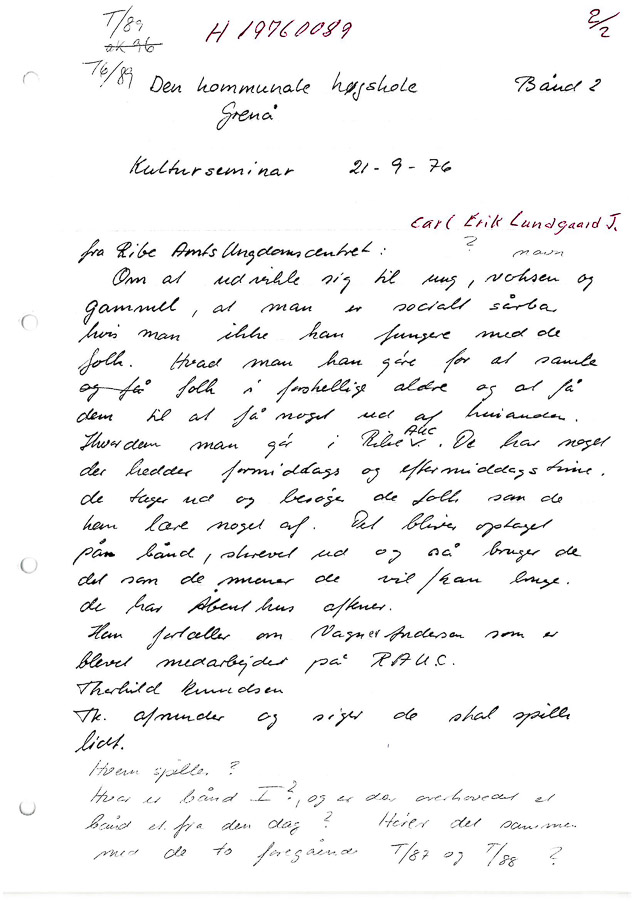 T/89
2/2
OK 96
H 19760089
T6/89
Den kommunale høgskole Bånd 2
Grenå
Kulturseminar 21-9-76
Carl Erik Lundgaard J.
? navn
fra Ribe Amts Ungdomscentret:
Om at udvikle sig til ung, voksen og
gammel, at man er socialt sårbar
hvis man ikke kan fungere med de
folk. Hvad man kan gøre for at samle
og få folk i forskellige aldre og at få
dem til at få noget ud af hinanden.
Hvordan man gør i Ribe AUC. De har noget
der hedder formiddags og eftermiddagstrine.
de tager ud og besøger de folk som de
kan lære noget af. Det bliver optaget
på bånd, skrevet ud og så bruger de
det som de mener de vil/kan bruge.
de har Åbent hus aftener.
Han fortæller om Vagner Andersen som er
blevet medarbejder på R.A.U.C.
Thorkild Knudsen
TK. afrunder og siger de skal spille
lidt.
Hvem spiller?
Hvor er bånd I?, og er der overhovedet et
bånd et fra den dag? Hører det sammen
med de to foregående T/87 og T/88 ?